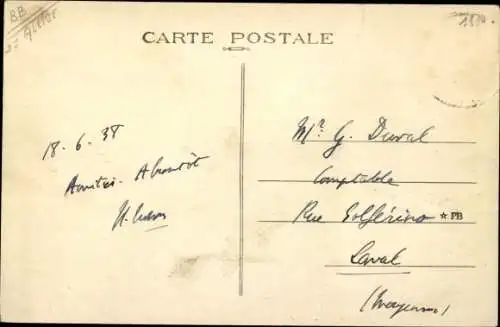 BB
CARTE POSTALE
18-6-38
Amitiés. A bientôt
Mr. G. Duval
Comptable
Rue Solférino
★ PB
Laval
(Mayenne)